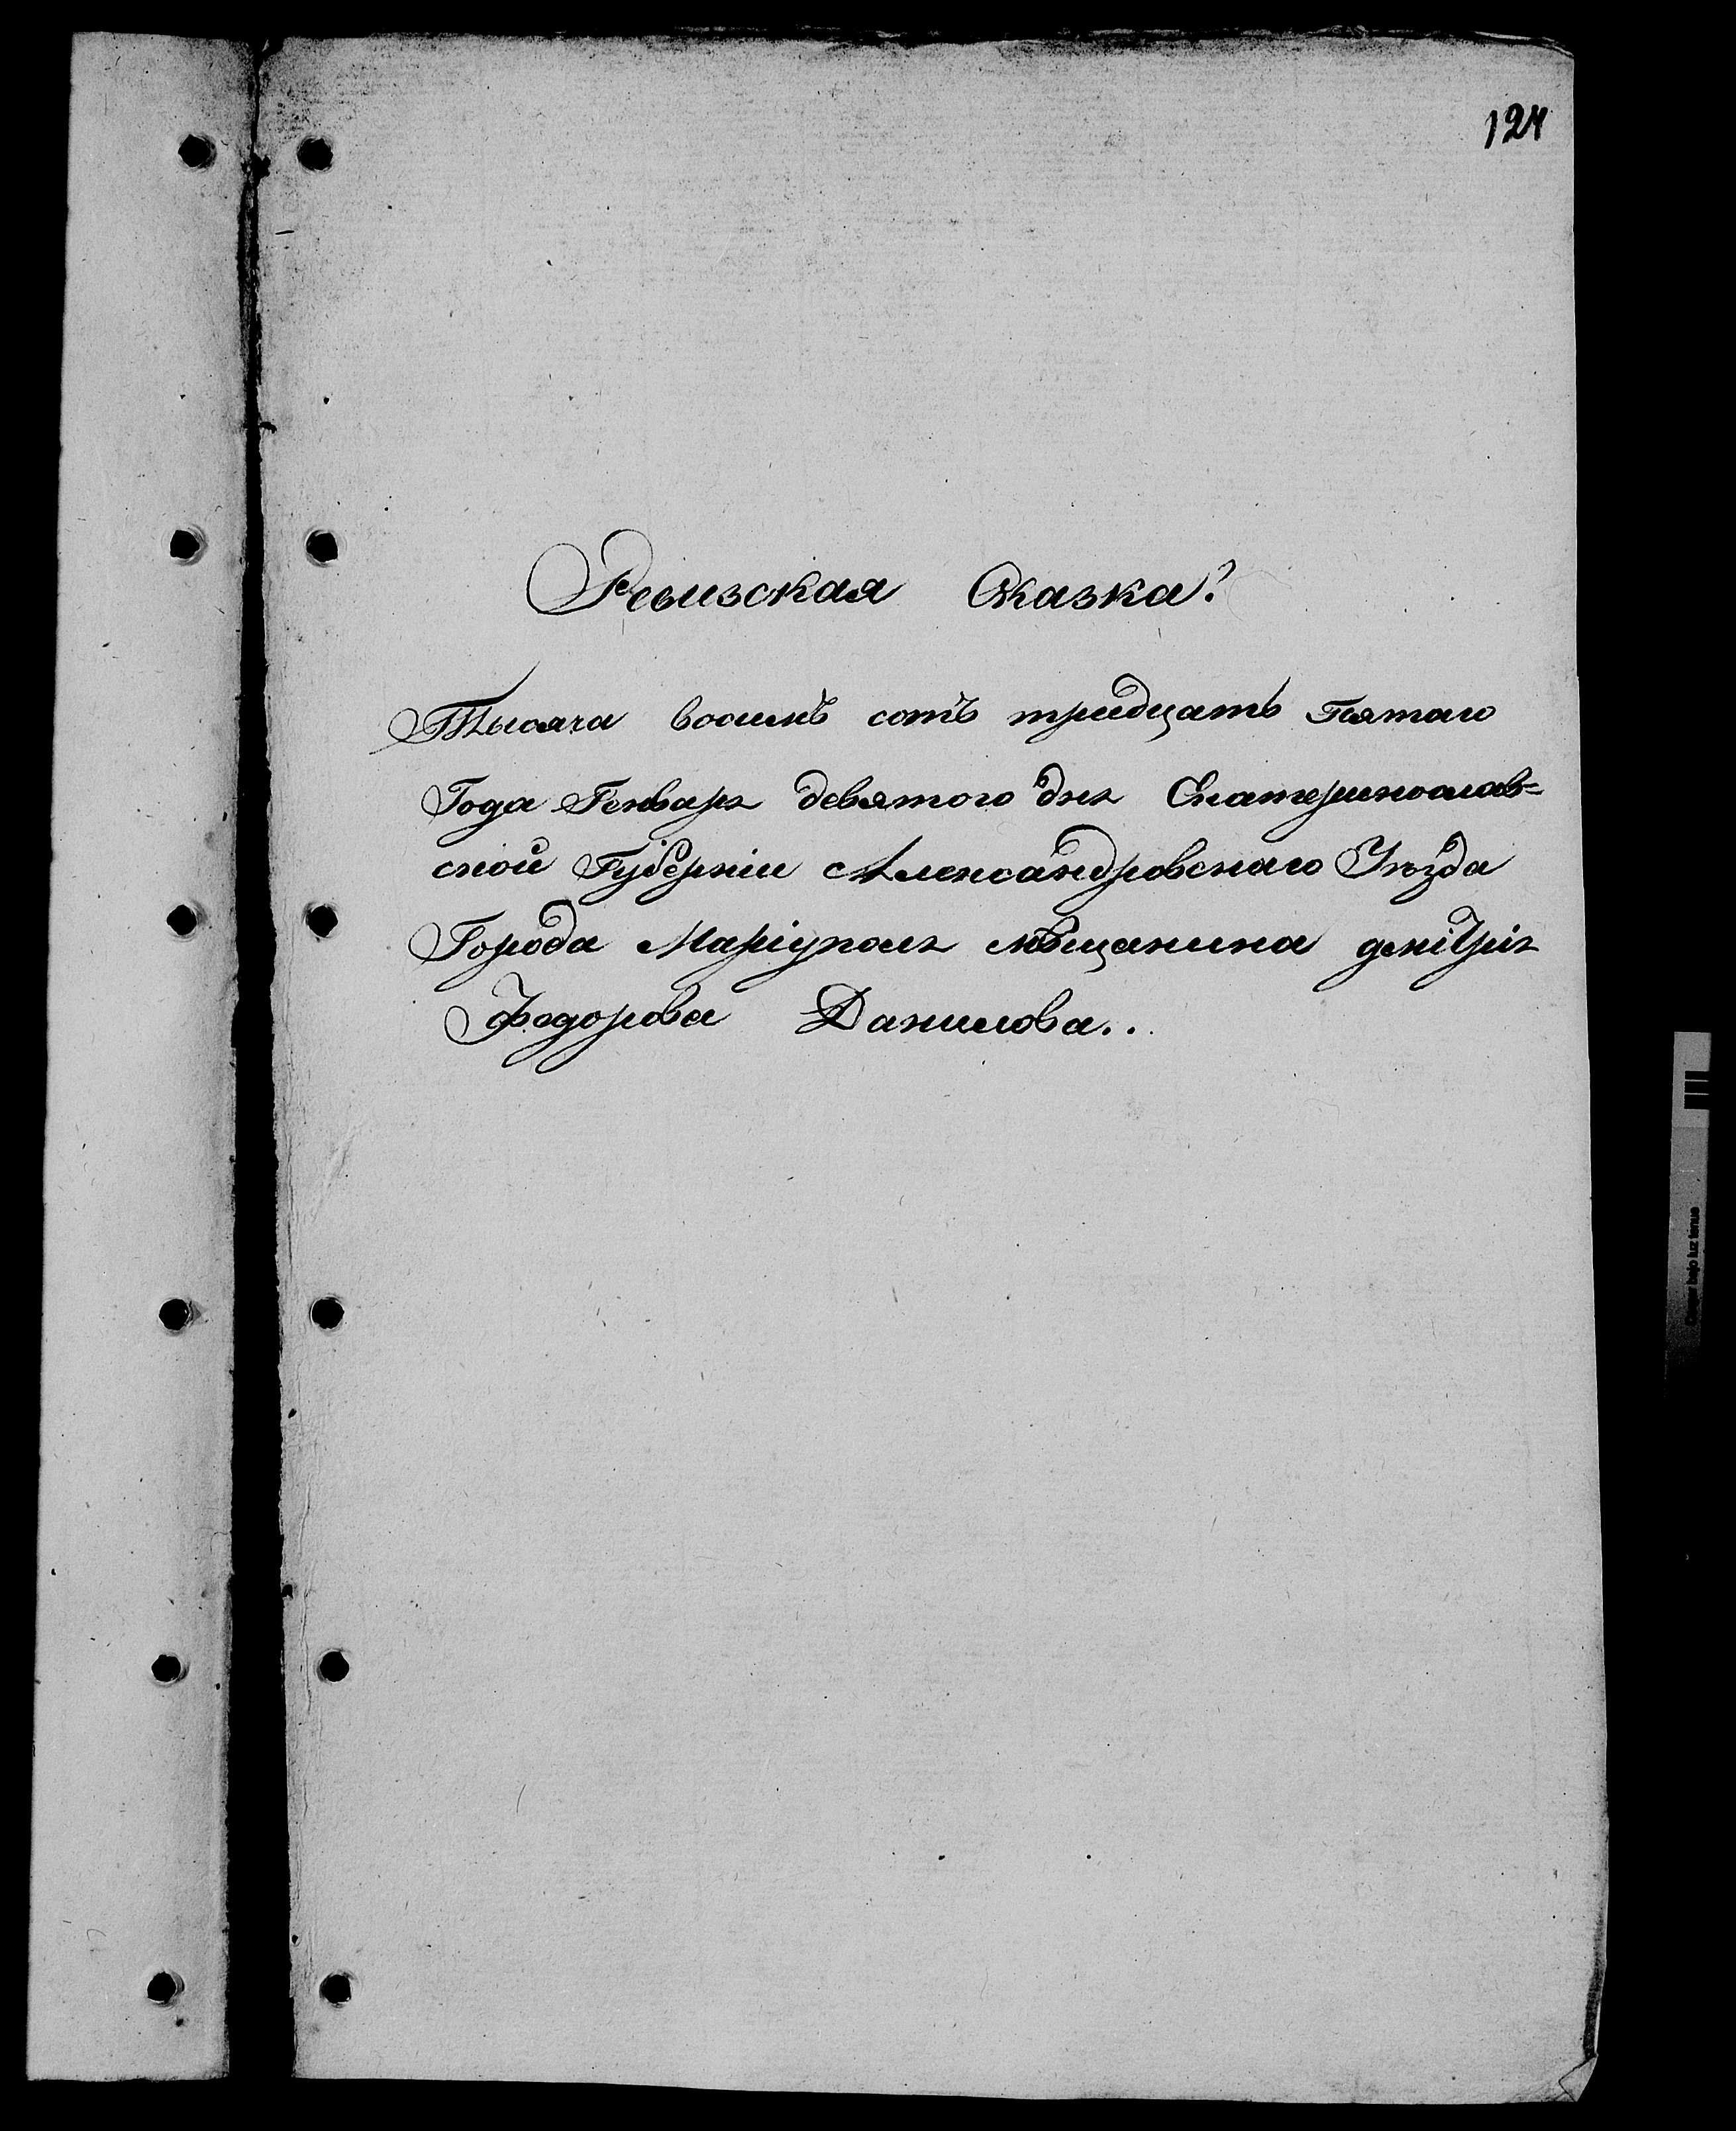 124
Ревизская Сказка.
Тысяча восемь сотъ тридцать Пятаго
Года Генваря девятого дня Екатеринослав=
ской Губерніи Александровскаго Уѣзда
Города Маріуполя мѣщанина дмітрія
Федорова Данилова..